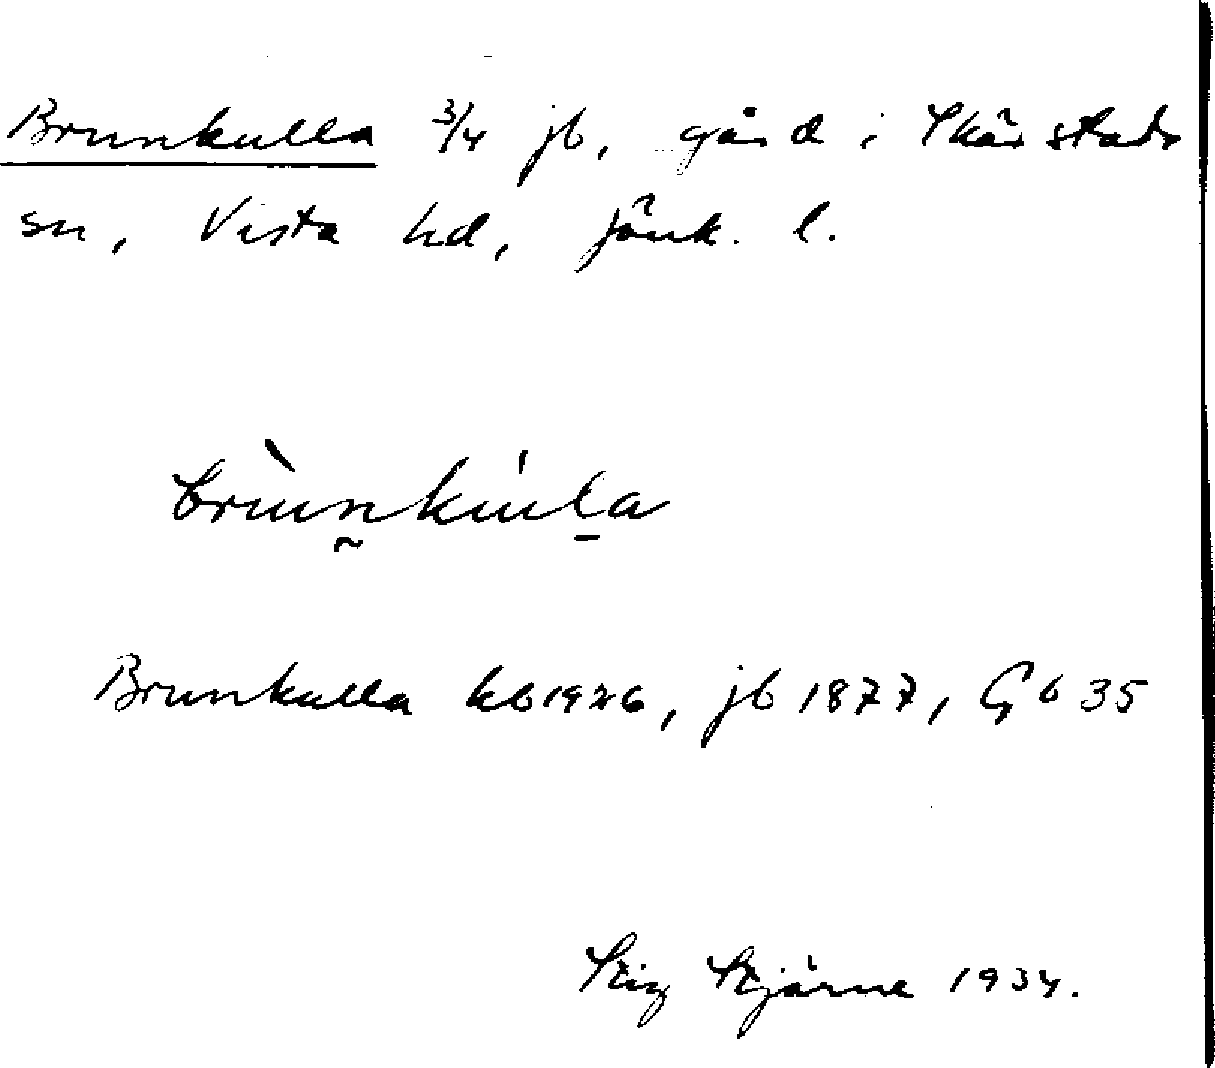 Brunkulla 3/4 jb, gård i Skärstads
sn, Vista hd, Jönk. l.
brùn̰kúl̠a
Brunkulla kb 1926, jb 1877, Gb 35
Stig Stjärne 1934.